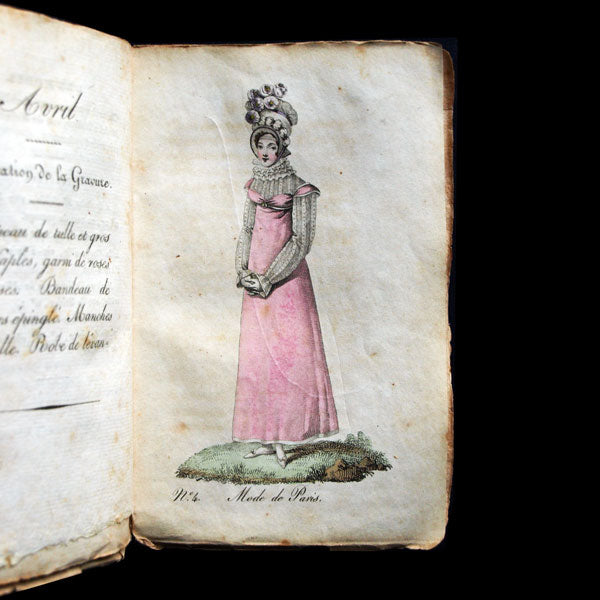 Avril
ation de la Gravure.
peau de tulle et gros
aples, garni de roses
ses. Bandeau de
ns épinglé. Manches
lle. Robe de lévan-
N.º 4. Mode de Paris.